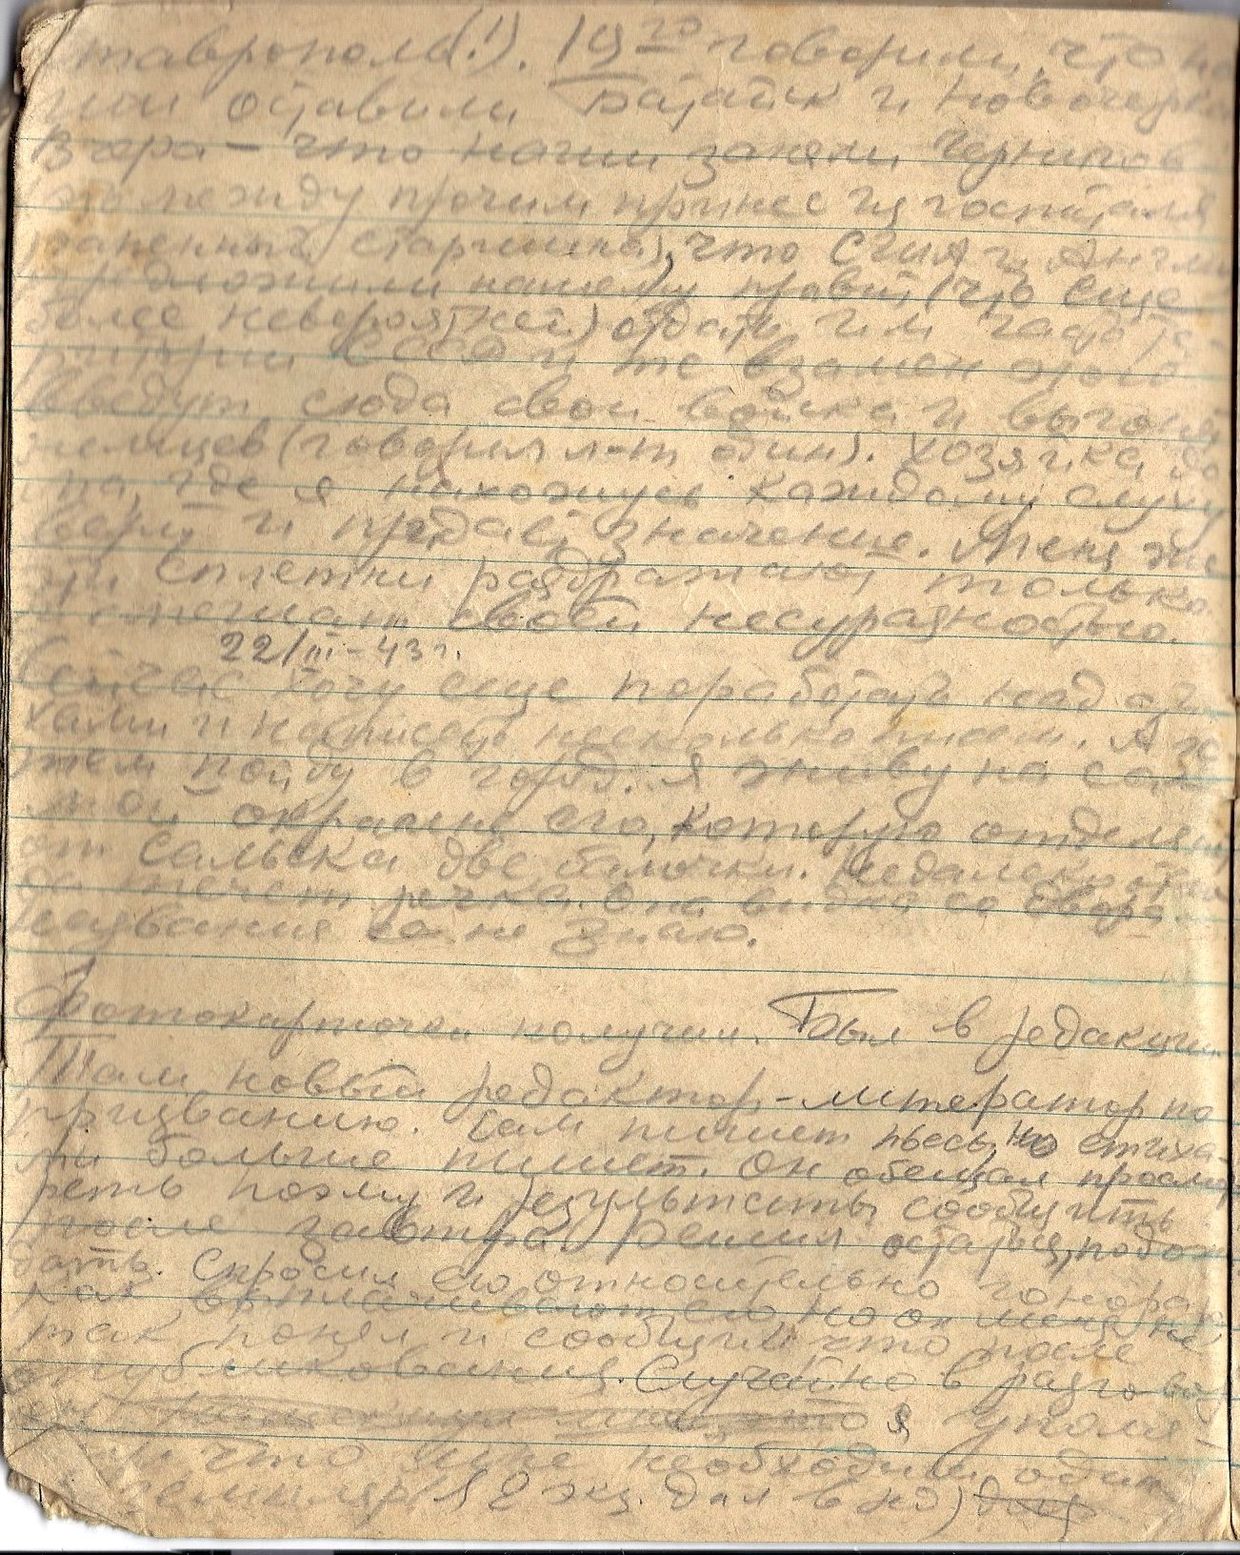 таврополь(!). 19го говорили, что на-
ши оставили Батайск и Новочерка
Вчера – что наши заняли Чернигов
(это между прочим принес из госпиталя
раненный старшина), что США и Англи
предложили нашему правит (что еще
более невероятней) отдать им часть те-
ритории СССР и те взамен этого
введут сюда свои войска и выгонят
немцев (говорил л-т один). Хозяйка до
ма, где я нахожусь каждому слуху
верит и придает значение. Меня же
эти сплетни раздражают только
своей несуразностью.
22/III-43 г.
Сейчас хочу еще поработать над сти
хами и написать несколько писем. А за
тем пойду в город. Я живу на са
мой окраине его, которую отделяют
от Сальска две балочки. Недалеко отсю
да течет речка. Она видна со двора.
Названия её не знаю.
Фотокарточки получил. Был в редакции.
Там новый редактор – литератор по
призванию. Сам пишет пьесы, но стиха-
ми больше пишет. Он обещал просмот
реть поэму и результаты сообщить
после завтра. Решил остаться, подож
дать. Спросил его относительно гонорара
как выплачивают его, но он меня не
так понял и сообщил что после
опубликования. Случайно в разгово
я упомя-
что мне необходим один
экземпляр (я 2 экз. дал в